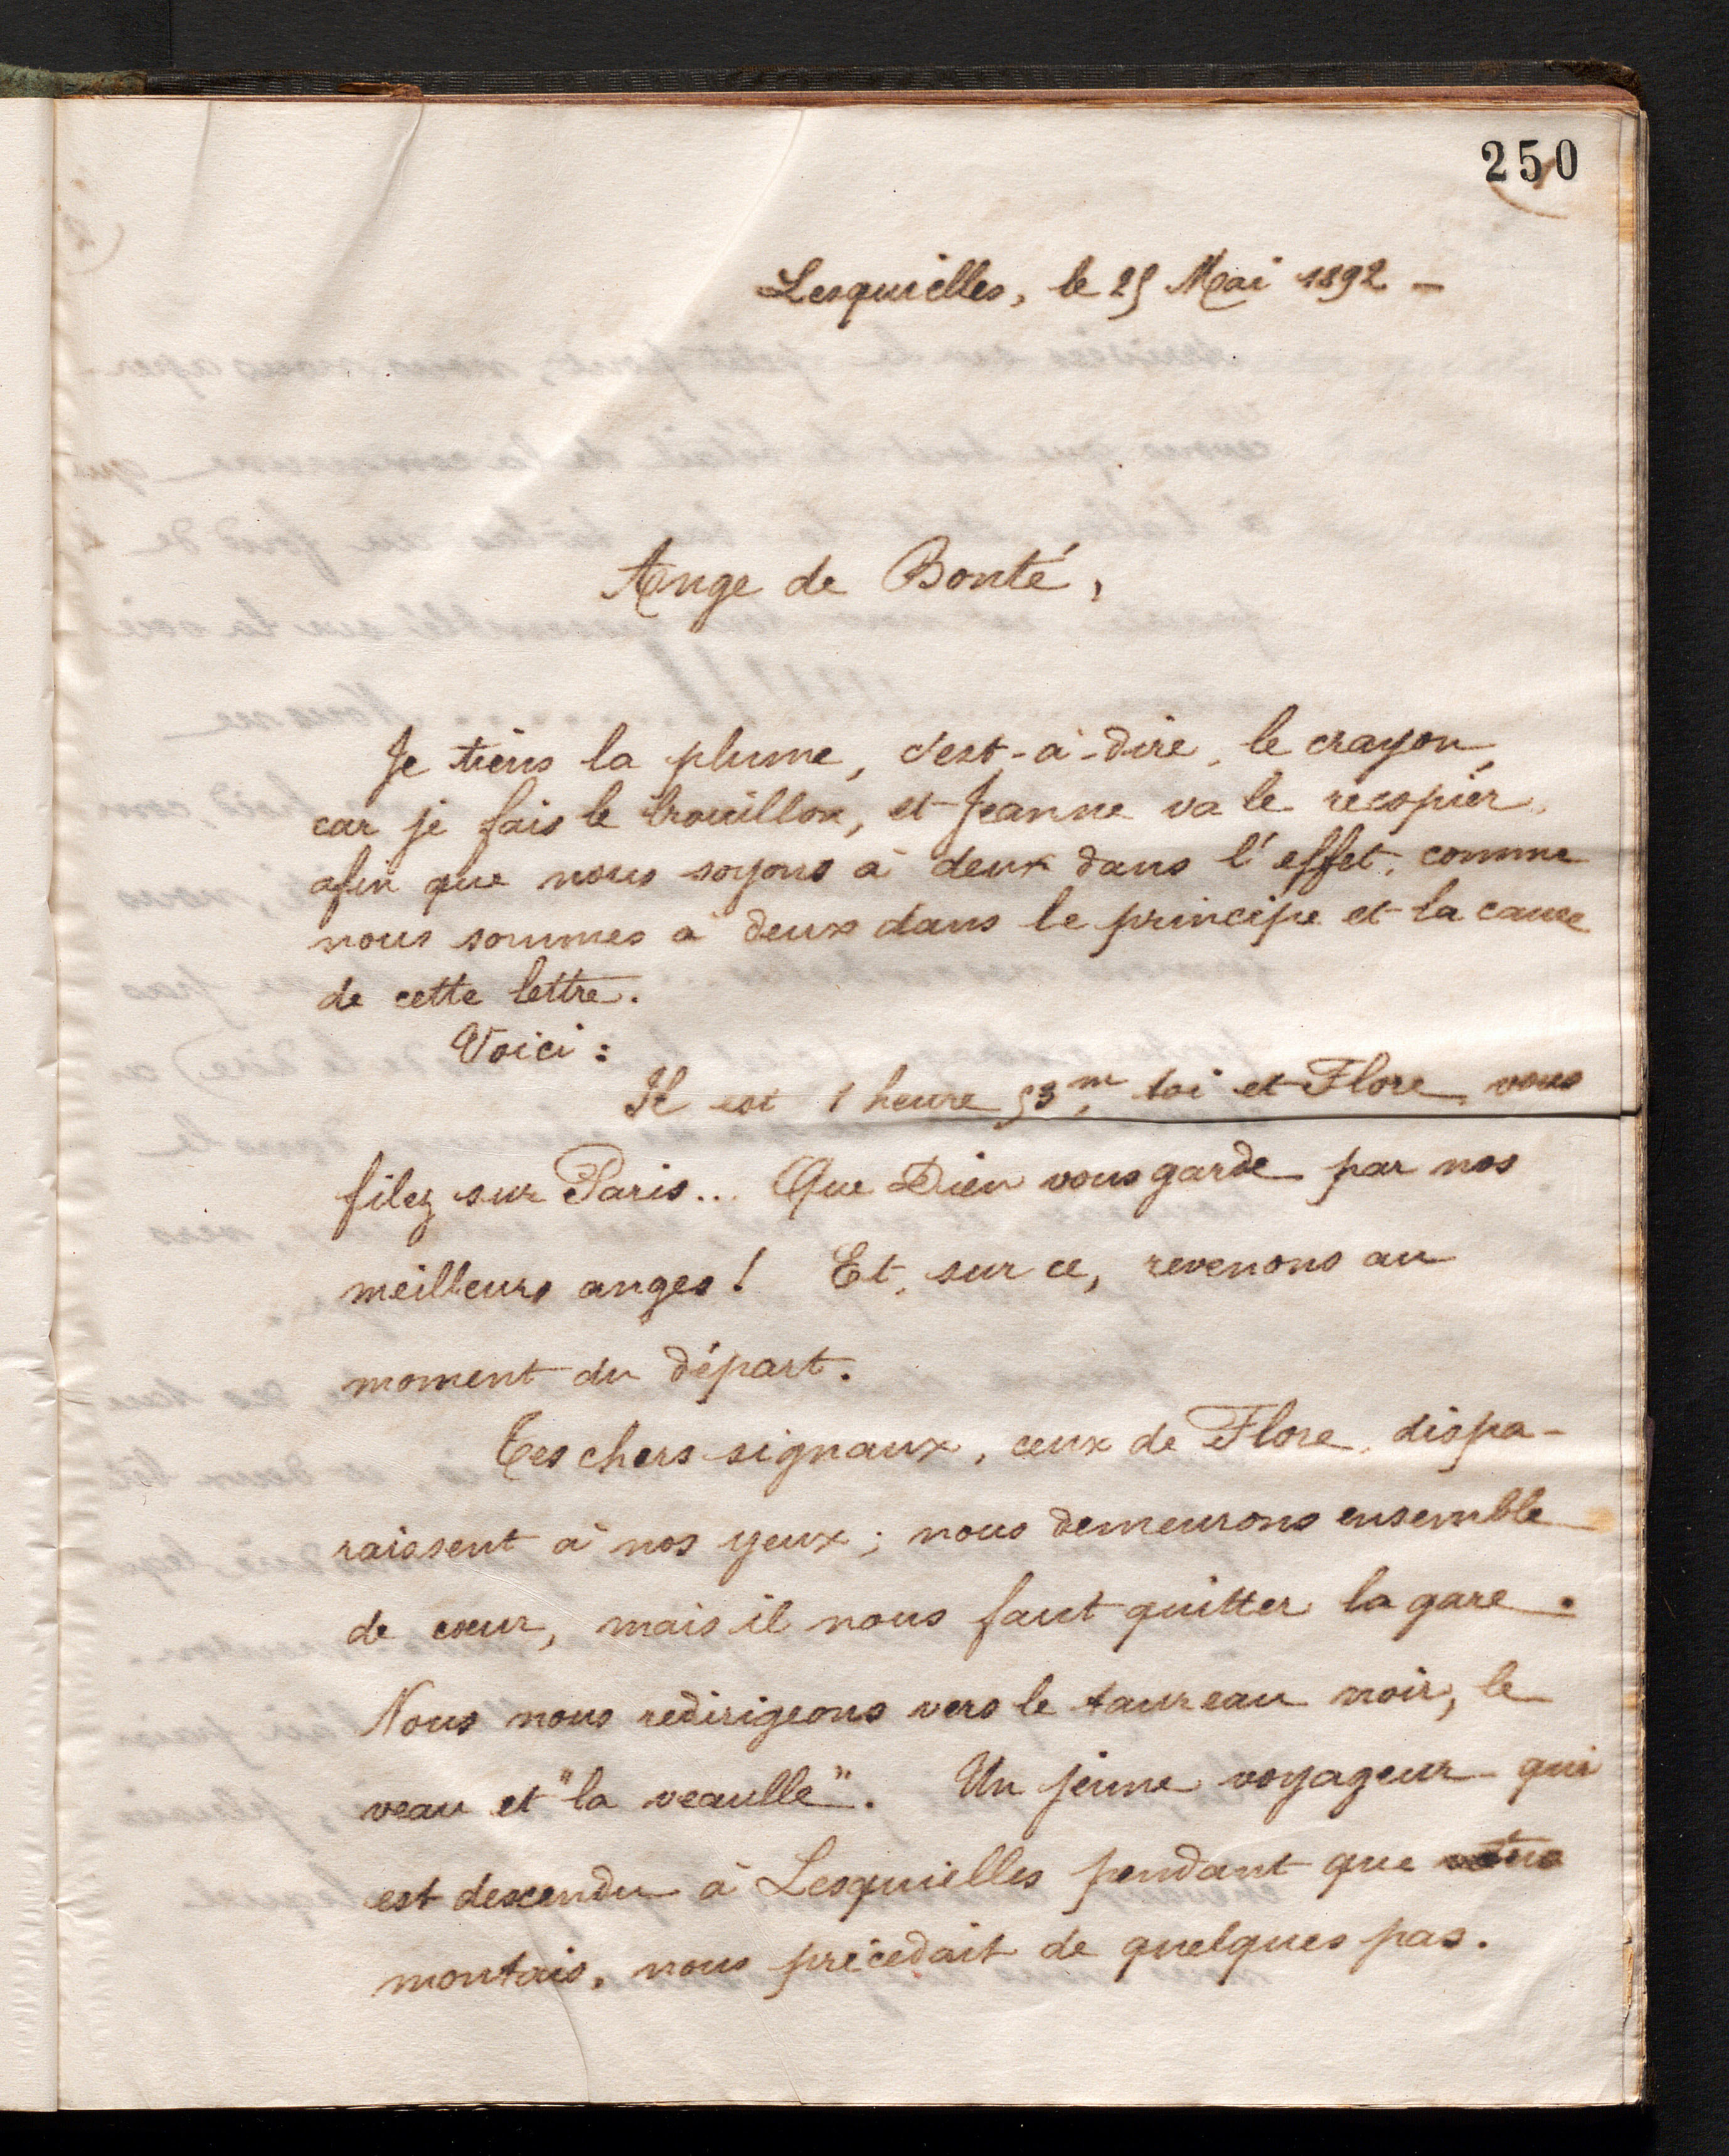 250
Lesquielles, le 25 Mai 1892 -
Ange de Bonté,
Je tiens la plume, c'est-à-dire, le crayon,
car je fais le brouillon, et Jeanne va le recopier,
afin que nous soyons à deux dans l'effet, comme
nous sommes à deux dans le principe et la cause
de cette lettre.
Voici :
Il est 1 heure 53m, toi et Flore, vous
filez sur Paris... Que Dieu vous garde par nos
meilleurs anges ! Et, sur ce, revenons au
moment du départ.
Tes chers signaux, ceux de Flore, dispa-
raissent à nos yeux ; nous demeurons ensemble
de cœur, mais il nous faut quitter la gare.
Nous nous redirigeons vers le taureau noir, le
veau et "la veaulle". Un jeune voyageur qui
est descendu à Lesquielles pendant que
montais, nous précédait de quelques pas.